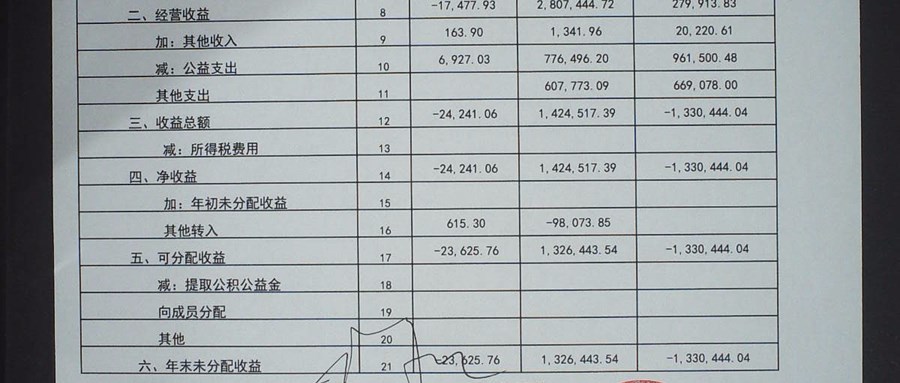 二、经营收益 8 -17,477.93 2,807,444.72 279,913.83
加：其他收入 9 163.90 1,341.96 20,220.61
减：公益支出 10 6,927.03 776,496.20 961,500.48
其他支出 11 607,773.09 669,078.00
三、收益总额 12 -24,241.06 1,424,517.39 -1,330,444.04
减：所得税费用 13
四、净收益 14 -24,241.06 1,424,517.39 -1,330,444.04
加：年初未分配收益 15
其他转入 16 615.30 -98,073.85
五、可分配收益 17 -23,625.76 1,326,443.54 -1,330,444.04
减：提取公积公益金 18
向成员分配 19
其他 20
六、年末未分配收益 21 -23,625.76 1,326,443.54 -1,330,444.04